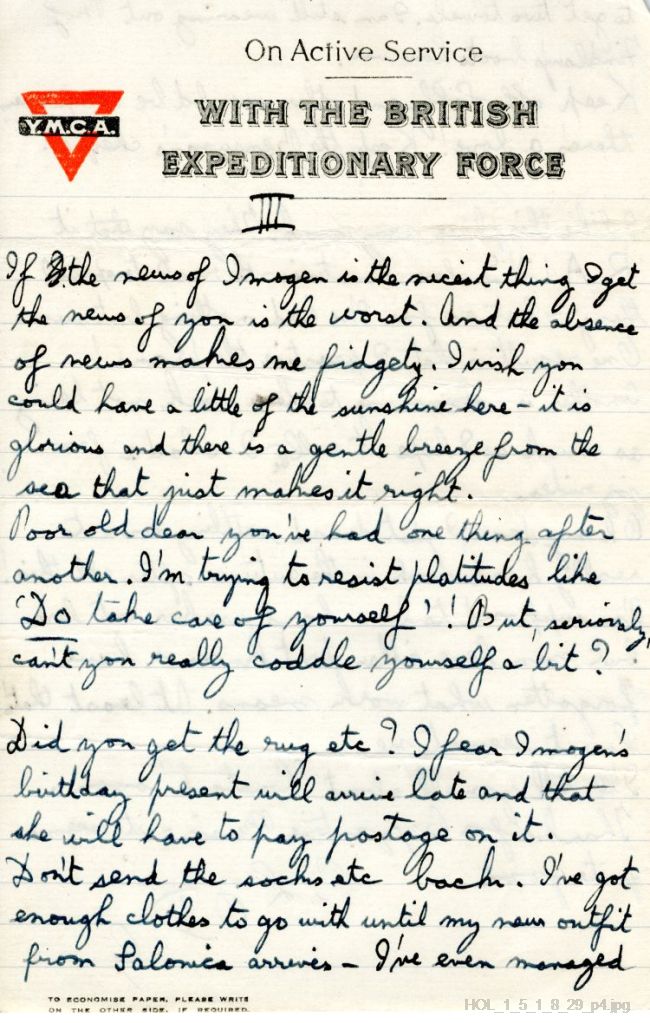 On Active Service
Y.M.C.A.
WITH THE BRITISH
EXPEDITIONARY FORCE
III
If the news of Imogen is the nicest thing I get
the news of you is the worst. And the absence
of news makes me fidgety. I wish you
could have a little of the sunshine here – it is
glorious and there is a gentle breeze from the
sea that just makes it right.
Poor old dear you've had one thing after
another. I'm trying to resist platitudes like
'Do take care of yourself'! But, seriously,
can't you really coddle yourself a bit?
Did you get the rug etc? I fear Imogen's
birthday present will arrive late and that
she will have to pay postage on it.
Don't send the socks etc back. I've got
enough clothes to go with until my new outfit
from Salonica arrives – I've even managed
TO ECONOMISE PAPER, PLEASE WRITE
ON THE OTHER SIDE, IF REQUIRED.
HOL_1_5_1_8_29_p4.jpg